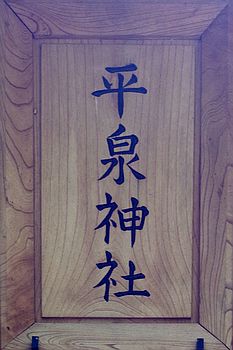 平泉神社